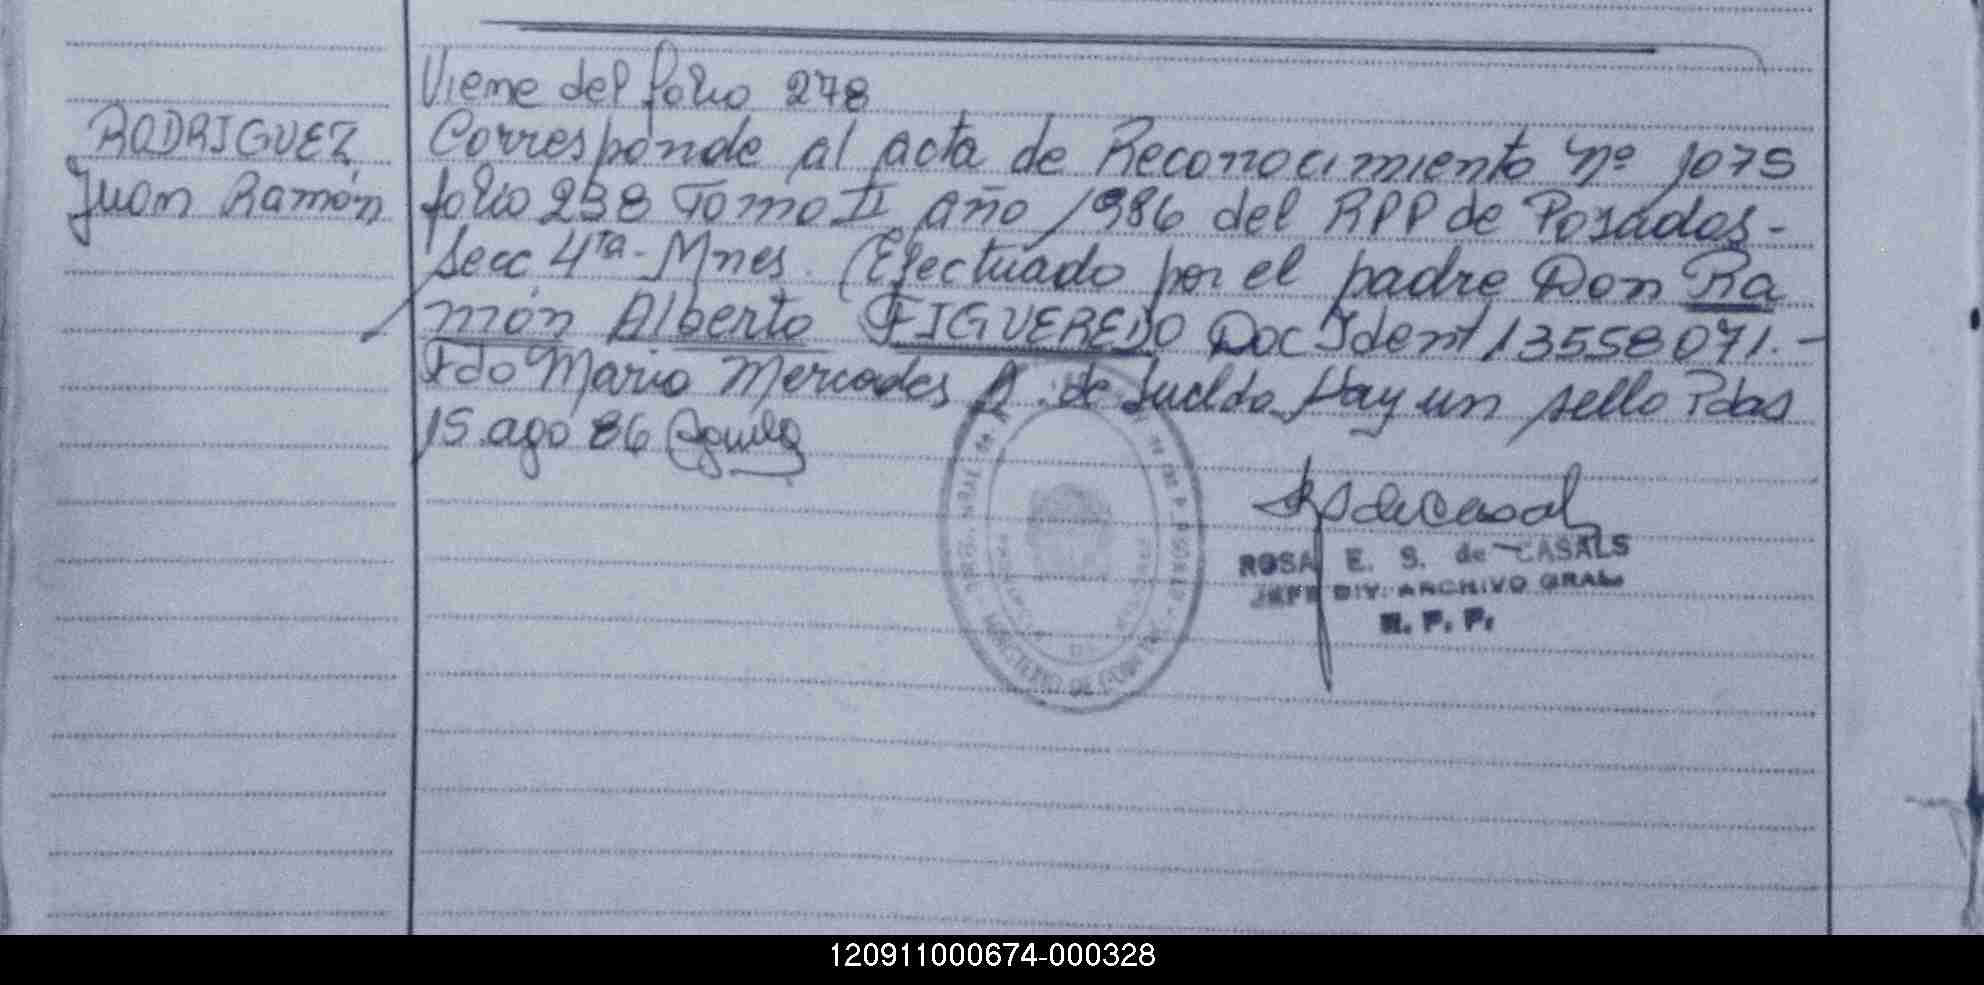 Viene del folio 278
RODRIGUEZ
Juan Ramón
Corresponde al acta de Reconocimiento Nº 1075
folio 238 Tomo II año 1986 del RPP de Posadas-
Secc 4ta- Mnes. (Efectuado por el padre Don Ra
món Alberto FIGUEREDO Doc Ident 13558071.-
Fdo Mario Mercedes A. de Sueldo Hay un sello Pdas
15 ago 86
ROSA E. S. de CASALS
JEFE DIV. ARCHIVO GRAL
R. P. P.
120911000674-000328